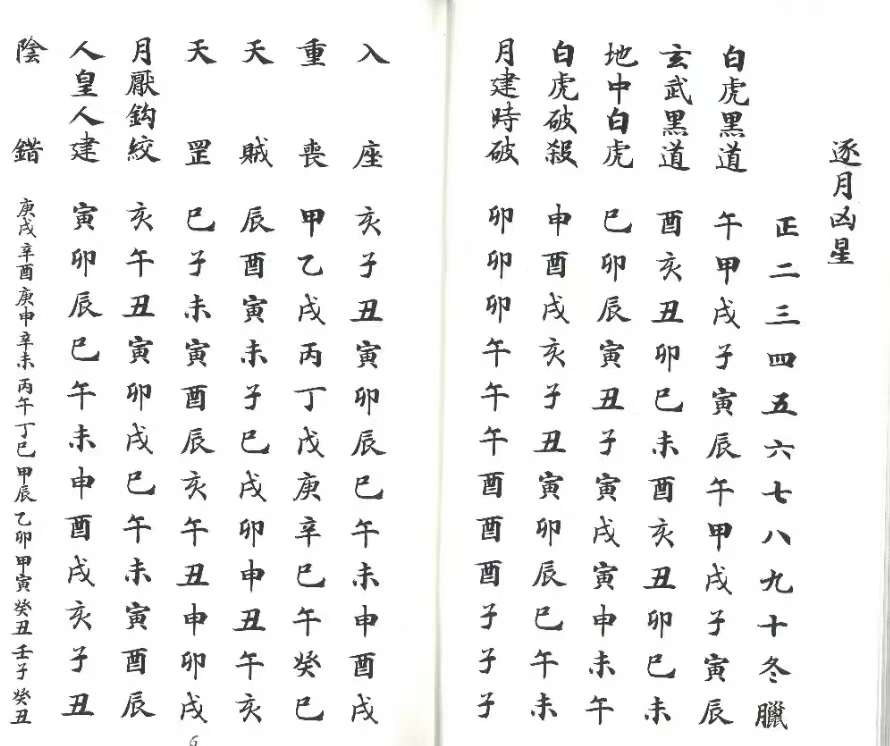 逐月凶星
正二三四五六七八九十冬臘
白虎黑道 午甲戌子寅辰午甲戌子寅辰
玄武黑道 酉亥丑卯巳未酉亥丑卯巳未
地中白虎 巳卯辰寅丑子寅戌寅申未午
白虎破殺 申酉戌亥子丑寅卯辰巳午未
月建時破 卯卯卯午午午酉酉酉子子子
入座 亥子丑寅卯辰巳午未申酉戌
重喪 甲乙戌丙丁戊庚辛巳午癸巳
天賊 辰酉寅未子巳戌卯申丑午亥
天罡 巳子未寅酉辰亥午丑申卯戌
月厭鈎絞 亥午丑寅卯戌巳午未寅酉辰
人皇人建 寅卯辰巳午未申酉戌亥子丑
陰錯 庚戌辛酉庚申辛未丙午丁巳甲辰乙卯甲寅癸丑壬子癸丑
6